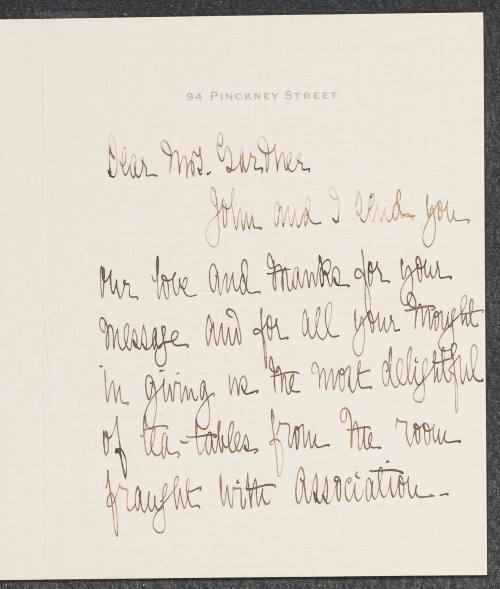 94 PINCKNEY STREET
Dear Mrs. Gardner
John and I send you
our love and thanks for your
message and for all your thought
in giving us the most delightful
of tea-tables from the room
fraught with association -